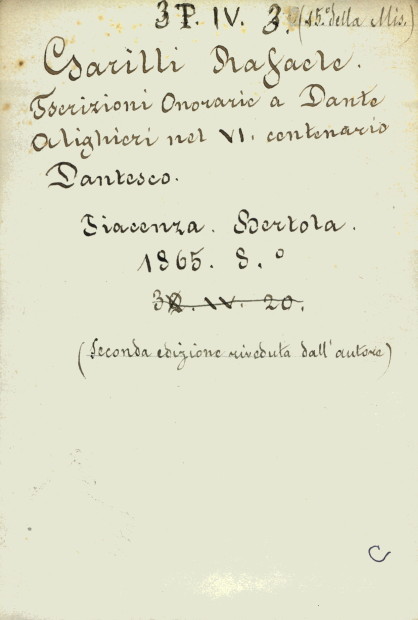 3 P. IV. 3. (15.° della Mis.)
Garilli Rafaele.
Iscrizioni Onorarie a Dante
Alighieri nel VI. centenario
Dantesco.
Piacenza. Bertola.
1865. 8.°
IV. 20.
(Seconda edizione riveduta dall'autore)
C